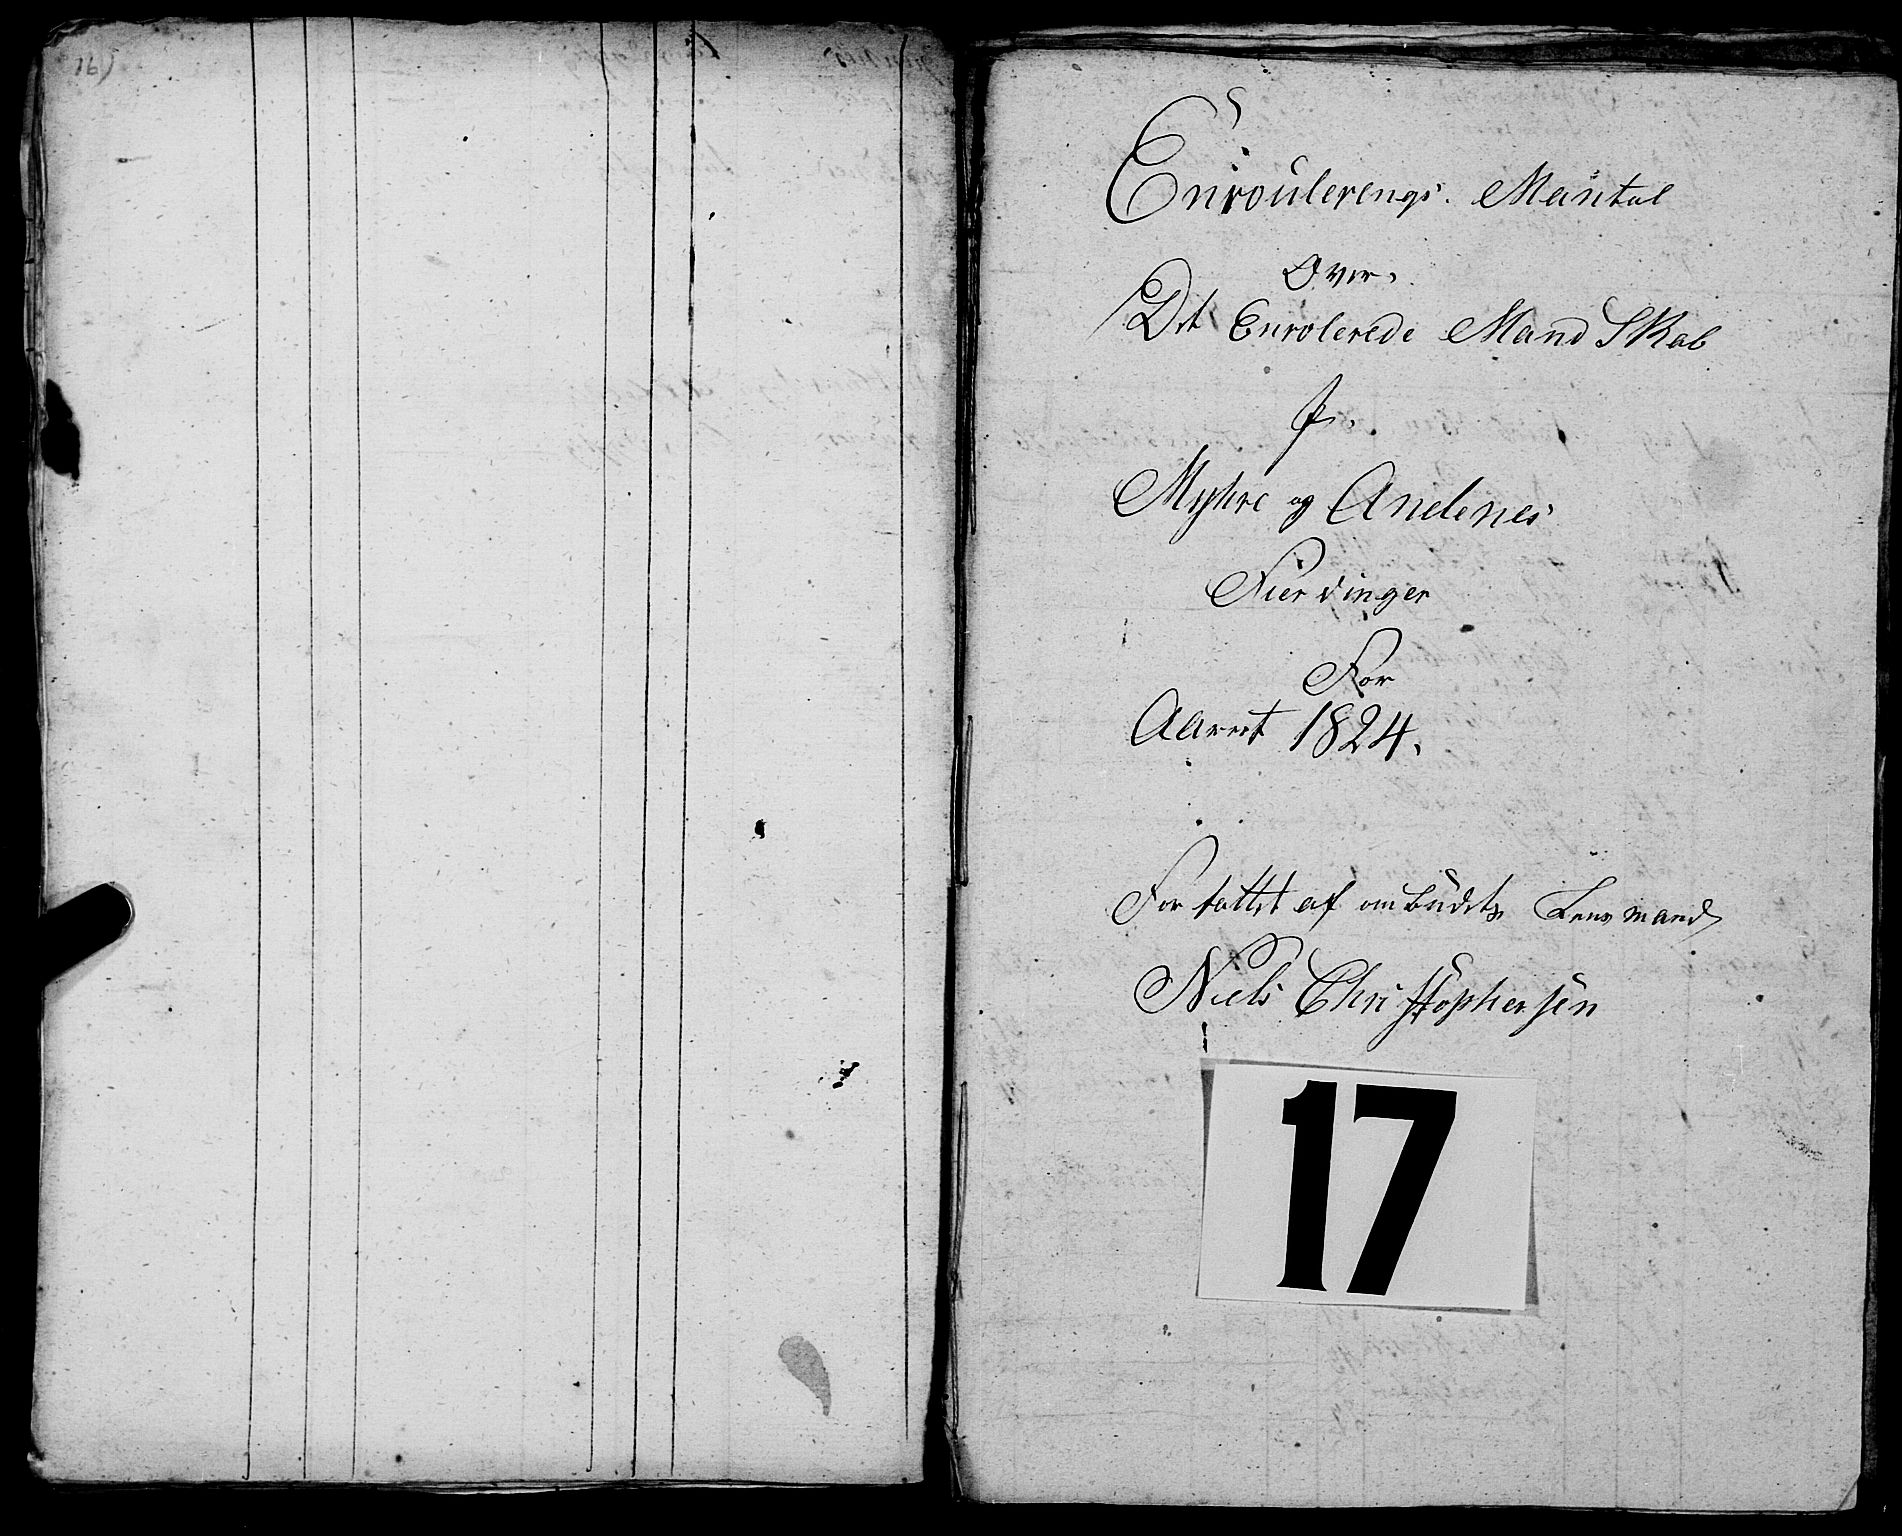 16)
Enroulerengs. Mantal
Over.
Det Enrolerede Mand Skab
J.
Myhre og Andenes
Fierdinger
For
Aaret 1824.
For fattet af ombudets Lens mand
Niels Christophersen
17